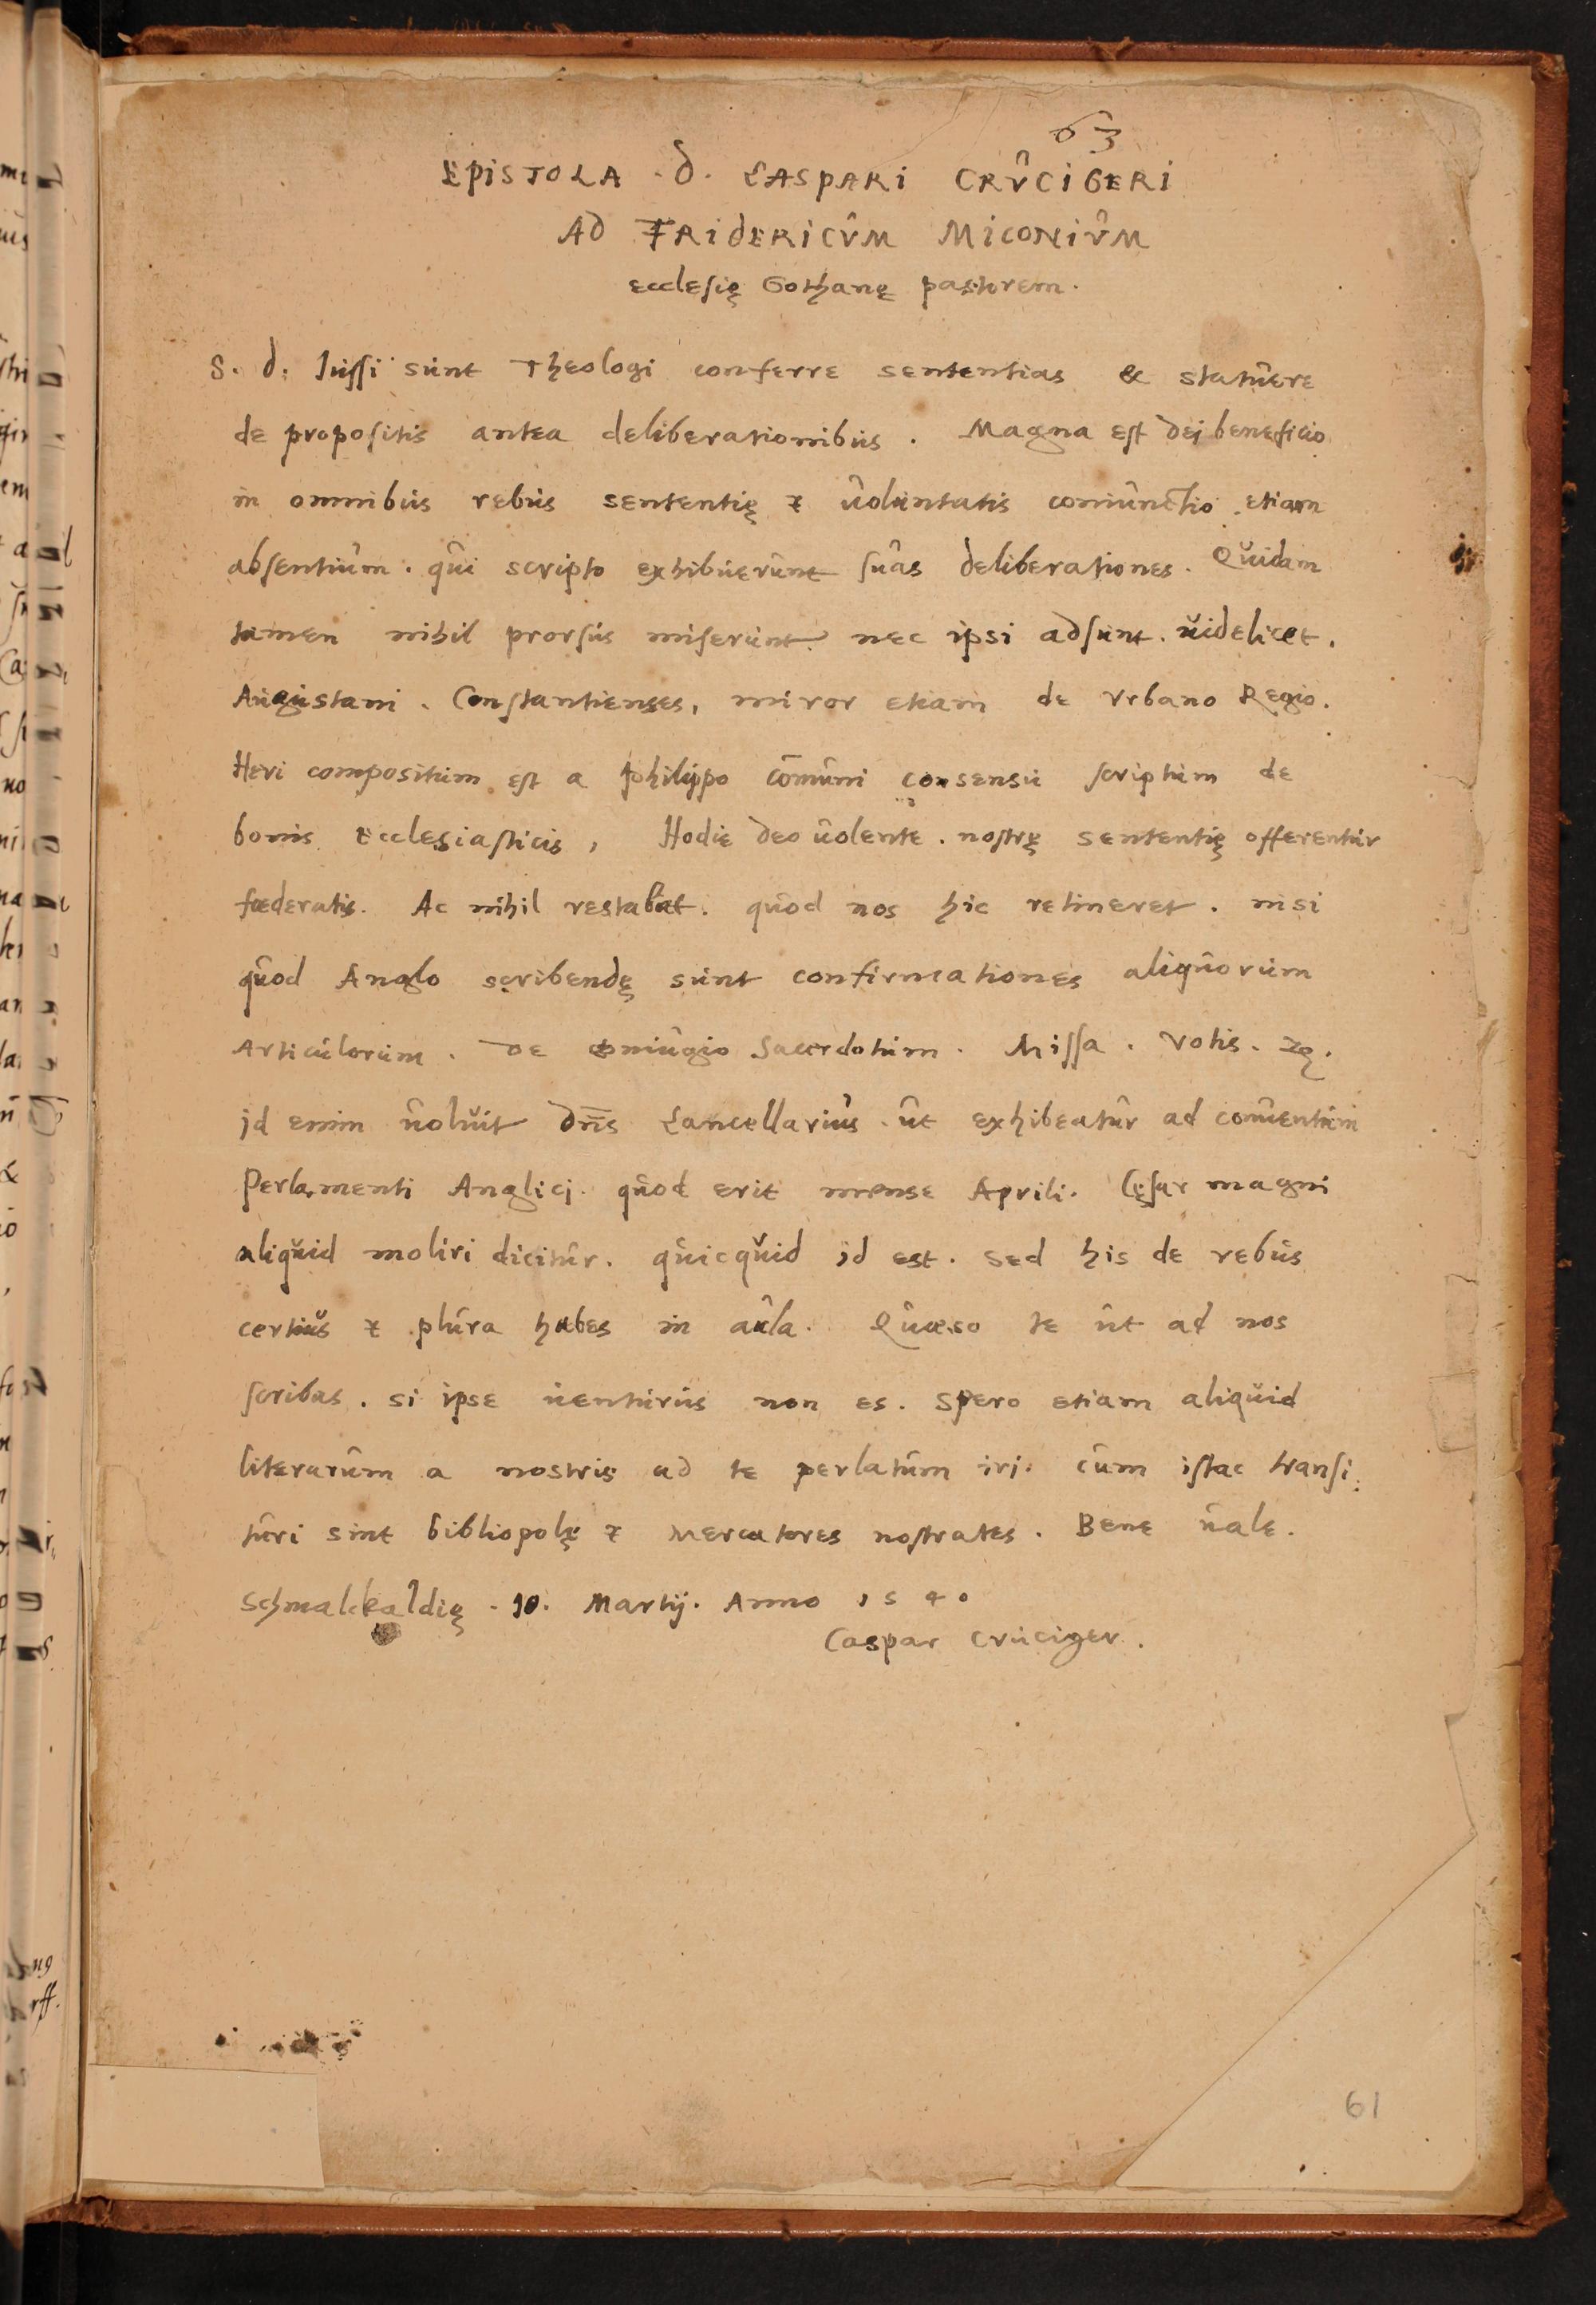 63
EPISTOLA . D. CASPARI CRUCIGERI
AD FRIDERICUM MICONIUM
ecclesię Gothanę pastorem.
S. d. Iussi sunt Theologi conferre sententias & statuere
de propositis antea deliberationibus . Magna est dej beneficio
in omnibus rebus sententię & voluntatis coniunctio etiam
absentium . qui scripto exhibuerunt suas deliberationes . Quidam
tamen nihil prorsus miserunt nec ipsi adsunt . uidelicet .
Augustani . Constantienses , miror etiam de Vrbano Regio .
Heri compositum est a philippo comũni consensu scriptum de
bonis Ecclesiasticis , Hodie deo uolente . nostrę sententię offerentur
fœderatis . Ac nihil restabat . quod nos hic retineret . nisi
quod Anglo scribendę sunt confirmationes aliquorum
Articulorum . De coniugio Sacerdotum . Missa . Votis . ꝛc .
jd enim uoluit dñs Cancellarius . ut exhibeatur ad conuentum
Perlamenti Anglicj . quod erit mense Aprili . Cęsar magni
aliquid moliri dicitur . quicquid id est . sed his de rebus
certius & plura habes in aula . Quæso te ut ad nos
scribas . si ipse uenturus non es . Spero etiam aliquid
literarum a nostris ad te perlatum irj . cum istac transi:
turi sint bibliopolę & Mercatores nostrates . Bene uale .
Schmalckaldię . 10 . Martij . Anno 1540
Caspar Cruciger .
61